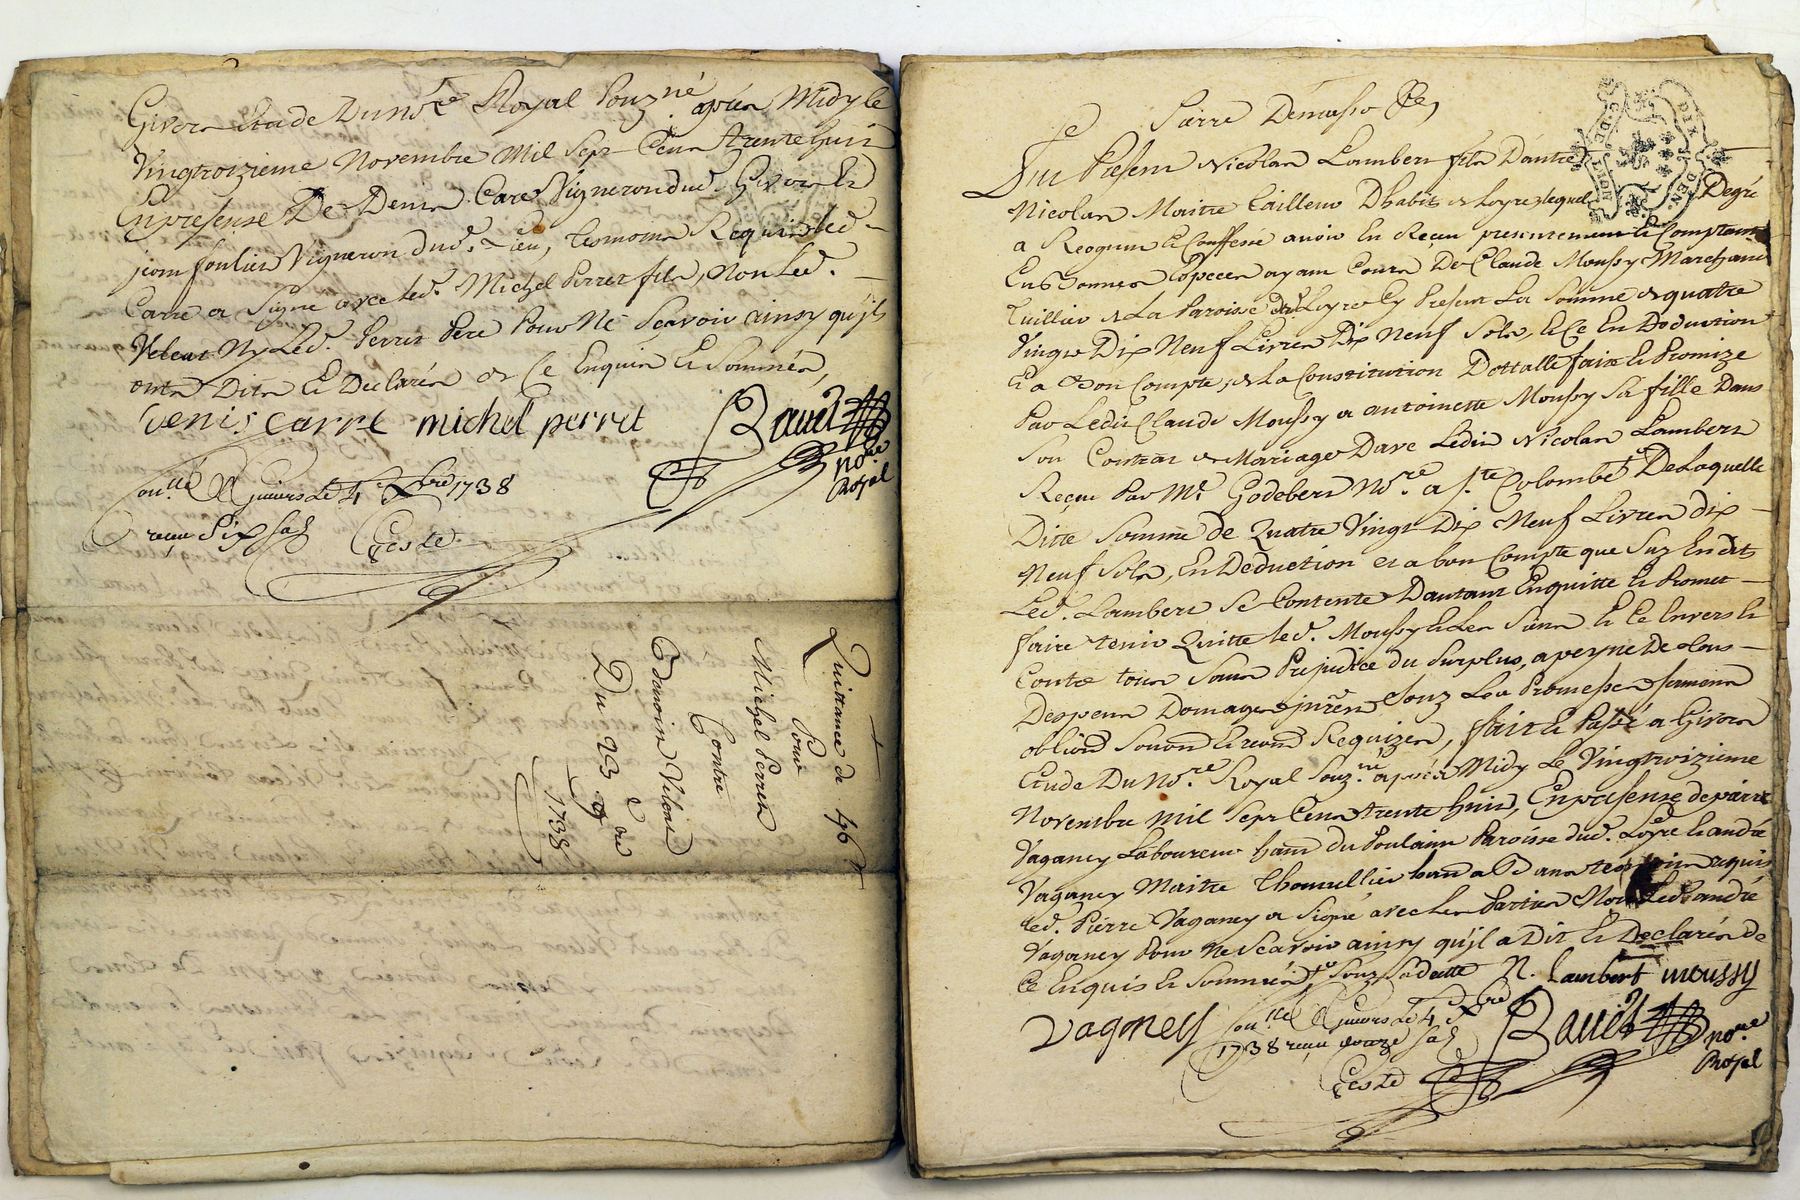 Givors Etude Du No.re Royal Souz.né après Midy le
Vingtroizieme Novembre Mil Sept Cent trente huit
En presense De Denis Carré Vigneron dud. Givors Et
jean foulieu Vigneron dud. Lieu, tesmoins Requis led.
Carre a Signé avec led. Michel Perret fils, Non Led.
Velout Ny Led. Perret Pere Pour Ne Scavoir ainsy qu'ils
onts Dits Et Declarés de Ce Enquis Et Sommés,
Denis Carre michel perret Bauet no.re Royal
Con.lle A Givors Le 4 Xbre 1738
reçu six sols Geste
Quittance de 46 tt
Pour
Michel Perret
Contre
Edanoin Veloat
Du 23 9bre
1738
Pierre Demasso
Fut Présent Nicolas Lambert fils Dautre
Nicolas Maitre Tailleur Dhabits de Loyre, lequel Degré
a Recognu Et Confessé avoir Eu Receu presentement Et Comptant
En Bonnes Especes ayant Cours De Claude Moussy Marchand
Tuillier de La Paroisse dud. Loyre Cy Present La Somme de quatre
Vingt Dix Neuf Livres Dix Neuf Sols, Et Ce En Doduction
Et a Bon Compte, de La Constitution Dottalle faite Et Promize
Par Ledit Claude Moussy a antoinette Moussy Sa fille Dans
Son Contrat de Mariage Dave Ledit Nicolas Lambert
Reçu Par M.e Godebert No.re a S.te Colombe De Laquelle
Ditte Somme de Quatre Vingt Dix Neuf Livres dix
Neuf Sols, En Deduction et a bon Compte que Suz En dit
Led. Lambert Se Contente Dautant Enquitte Et Promet
faire tenir Quitte led. Moussy Et Les Siens Et Ce Envers Et
Contre tous Sans Prejudice du Surplus, a peyne De tous
Despens Domages jnrés Souz Les Promesses serments
obliõns Soumõns Et renõns Requizes, fait Et Passé a Givors
Etude Du No.re Royal Souz.né après Midy Le Vingtroizieme
Novembre Mil Sept Cent trente huit, En presense de pierre
Vaganey Laboureur hant du Poulain Paroisse dud. Loyre Et andré
Vaganey Maitre Chamellier hant a tesmoins requis
led. Pierre Vaganey a Signé avec les Parties Non Led. andré
Vaganey Pour Ne Scavoir ainsy qu'jl a Dit Et Declarés de
Ce Enquis Et Sommés, Souz Sa dette N. Lambert moussy
Vagney Con.lle A Givors Le 4 Xbre Bauet no.re
1738 reçu douze sols Royal
Geste